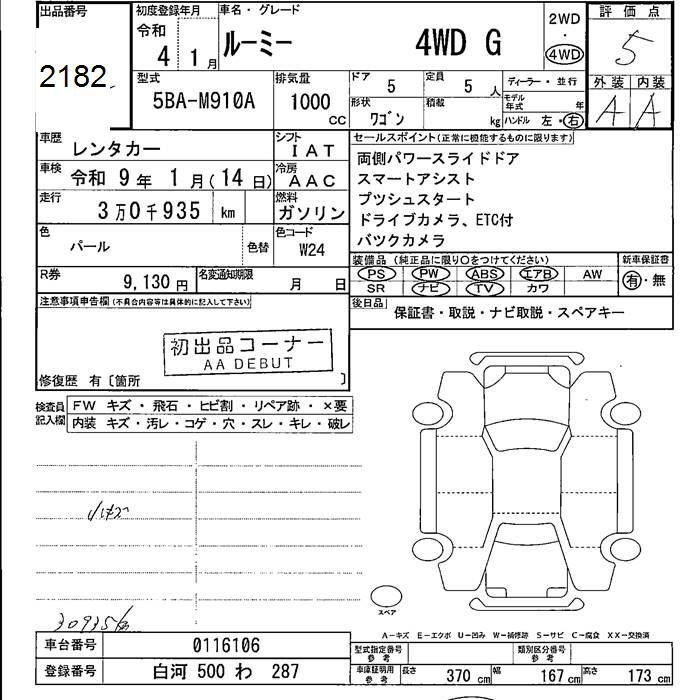 出品番号
2182
初度登録年月
令和
4 1月
車名・グレード
ルーミー 4WD G
2WD
・
4WD
評価点
5
型式
5BA-M910A
排気量
1000
CC
ドア
5
定員
5 人
形状
ワゴン
積載
kg
ディーラー・並行
モデル年式 年
ハンドル 左・右
外装 内装
A A
車歴
レンタカー
シフト
IAT
車検
令和 9年 1月(14日)
冷房
AAC
走行
3万0千935 km
燃料
ガソリン
色
パール
色替
色コード
W24
R券
9,130円
名変通知期限
月 日
セールスポイント(正常に機能するものに限ります)
両側パワースライドドア
スマートアシスト
プツシュスタート
ドライブカメラ、ETC付
バツクカメラ
装備品 (純正品に限り○をつけてください)
PS PW ABS エアB AW
SR ナビ TV カワ
新車保証書
有・無
後日品
保証書・取説・ナビ取説・スペアキー
注意事項申告欄(不具合内容等は具体的に記入して下さい)
初出品コーナー
AA DEBUT
修復歴 有〔箇所 〕
検査員記入欄
FW キズ・飛石・ヒビ割・リペア跡・×要
内装 キズ・汚レ・コゲ・穴・スレ・キレ・破レ
小キズ
30935km
スペア
A-キズ E-エクボ U-凹み W-補修跡 S-サビ C-腐食 XX-交換済
車台番号
0116106
登録番号
白河 500 わ 287
型式指定番号
参考
類別区分番号
参考
車庫証明用
参考
長さ 370 cm 幅 167 cm 高さ 173 cm